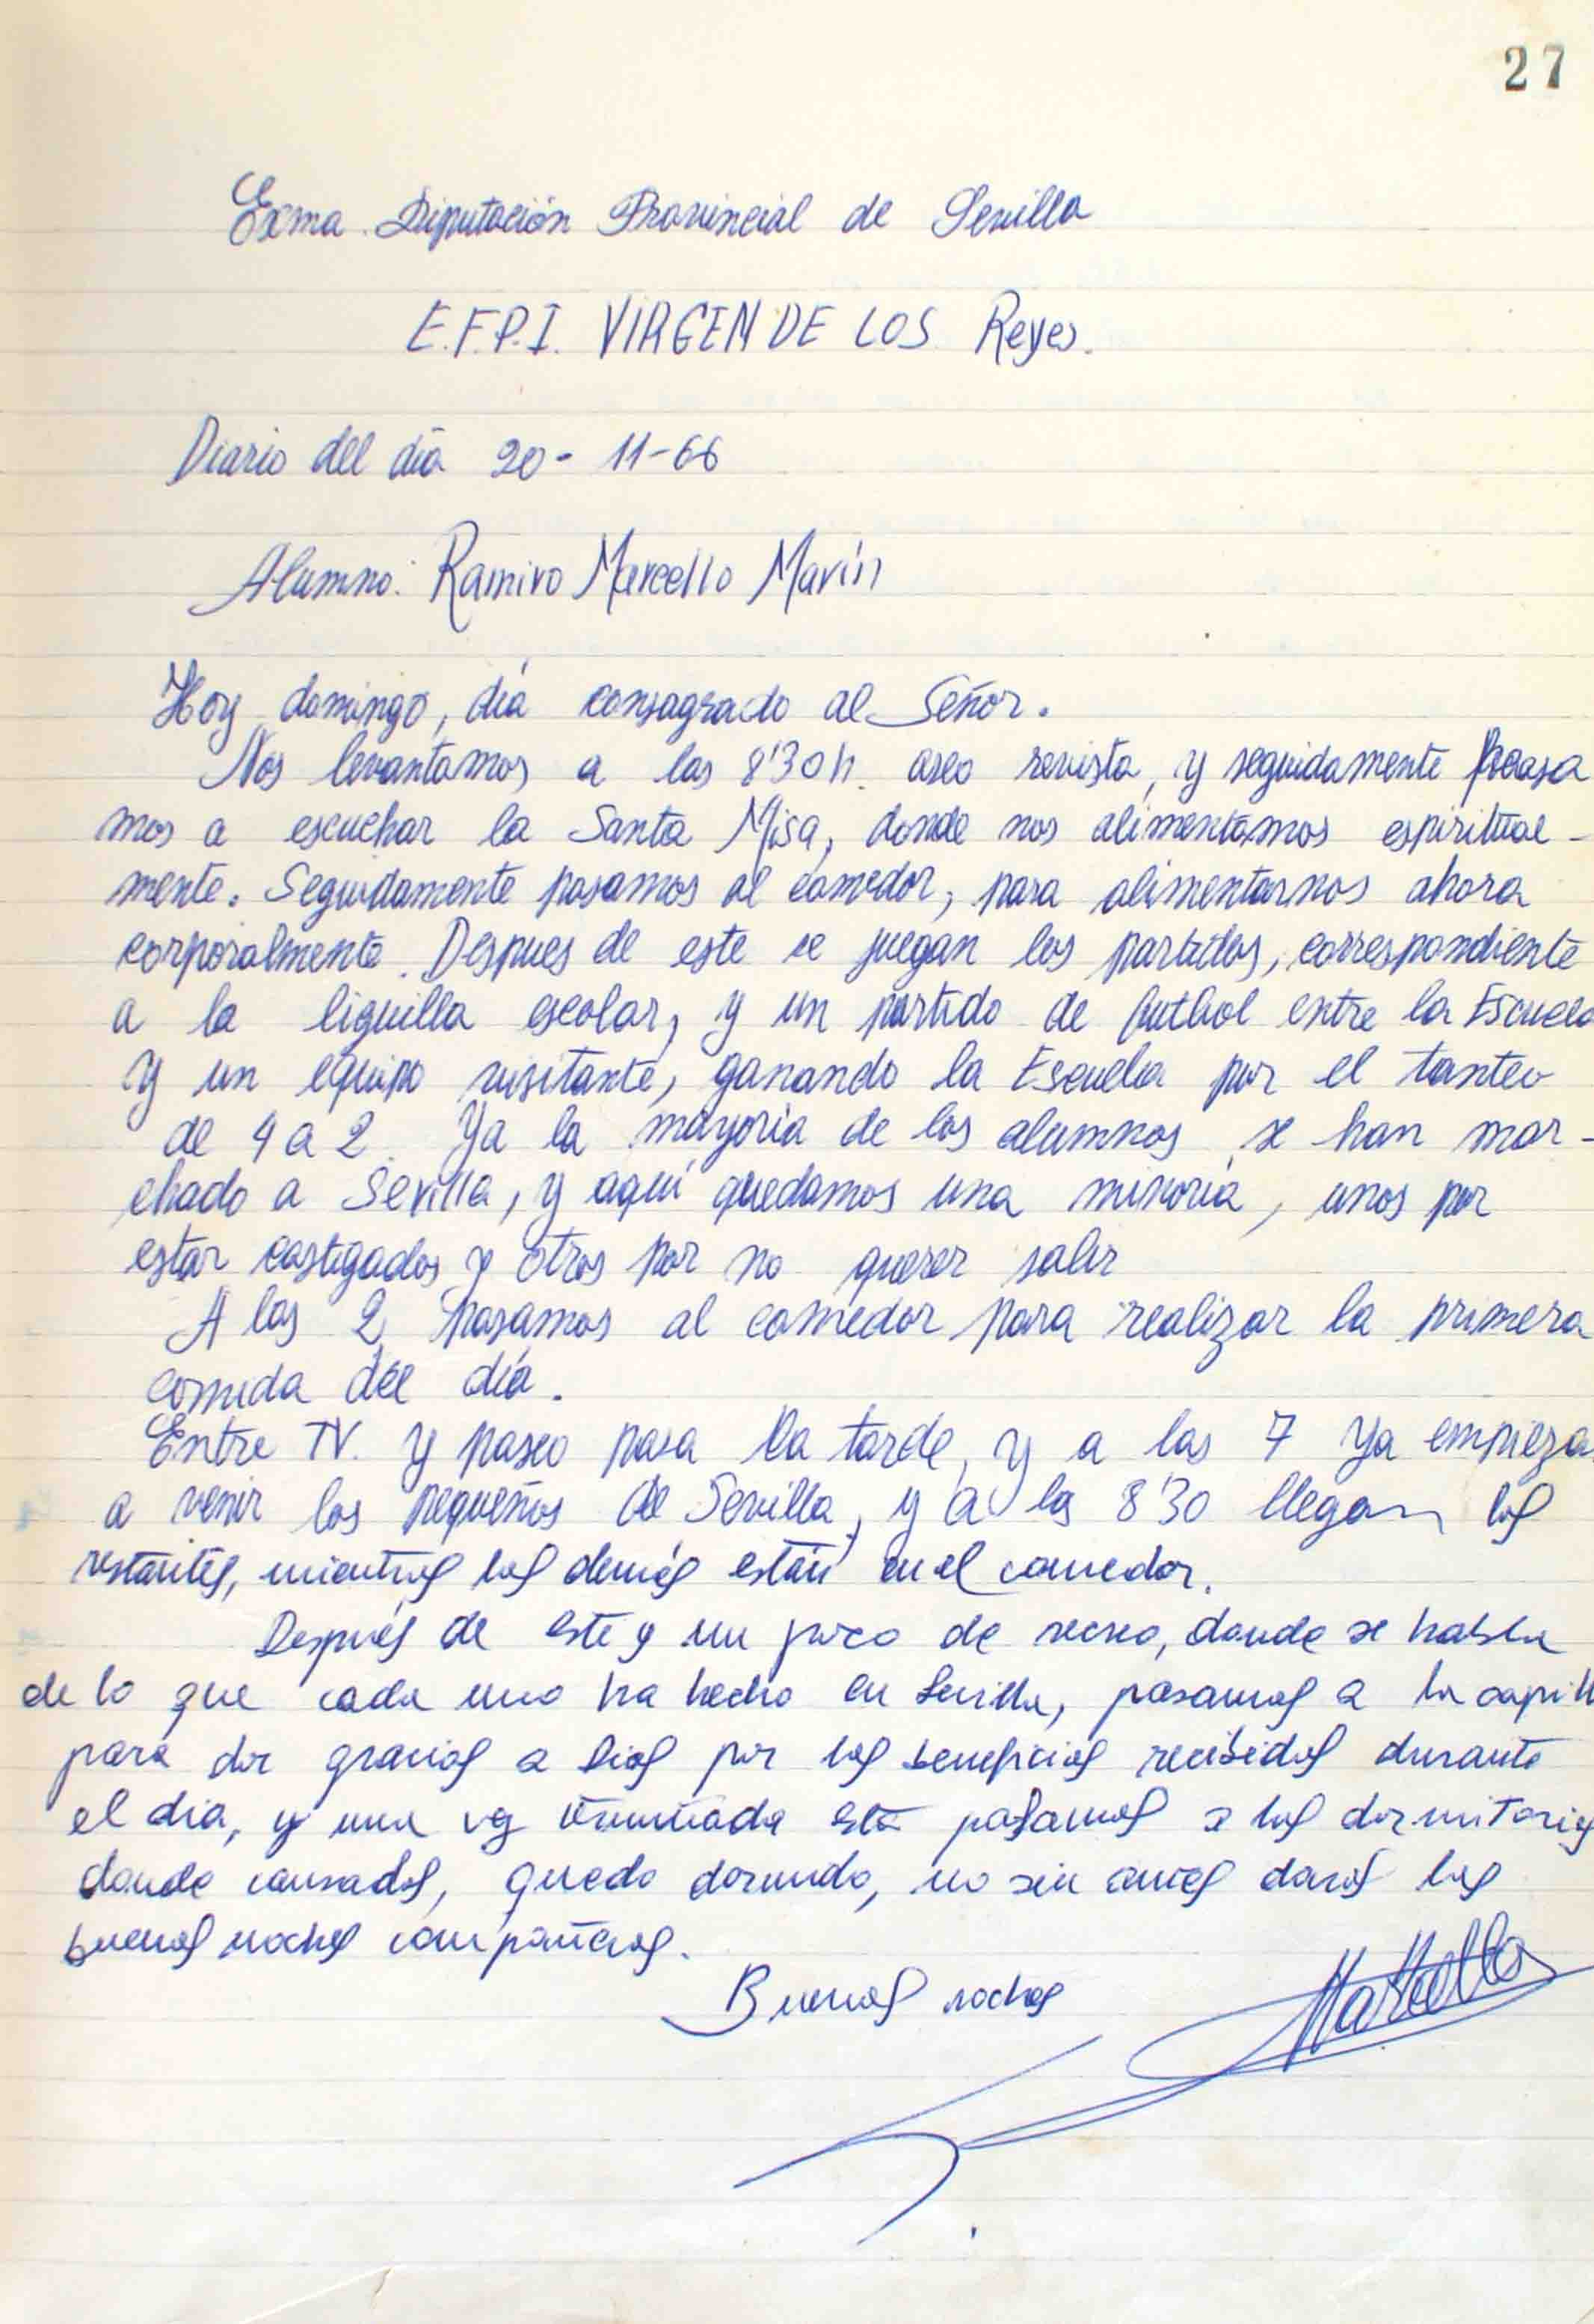 27
Exma. Diputación Provincial de Sevilla
E.F.P.I. VIRGEN DE LOS Reyes.
Diario del día 20-11-66
Alumno: Ramiro Marcello Marín
Hoy domingo, día consagrado al Señor.
Nos levantamos a las 8'30 h. aseo revista, y seguidamente pasa
mos a escuchar la Santa Misa, donde nos alimentamos espiritual-
mente. Seguidamente pasamos al comedor, para alimentarnos ahora
corporalmente. Despues de este se juegan los partidos, correspondiente
a la liguilla escolar, y un partido de futbol entre la Escuela
y un equipo visitante, ganando la Escuela por el tanteo
de 4 a 2. Ya la mayoría de los alumnos se han mar-
chado a Sevilla, y aquí quedamos una minoría, unos por
estar castigados y otros por no querer salir
A las 2 pasamos al comedor para realizar la primera
comida del día.
Entre TV. y paseo pasa la tarde, y a las 7 ya empieza
a venir los pequeños de Sevilla, y a las 8'30 llegan los
restantes, mientras los demás están en el comedor.
Después de este y un poco de recreo, donde se habla
de lo que cada uno ha hecho en Sevilla, pasamos a la capill
para dar gracias a Dios por los beneficios recibidos durante
el día, y una vez terminada esta pasamos a los dormitorios
donde cansados, quedo dormido, no sin antes daros las
buenas noches compañeros.
Buenas noches
Marcello